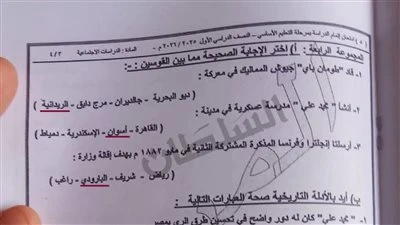 ( ٨ ) امتحان إتمام الدراسة بمرحلة التعليم الأساسي - النصف الدراسي الأول ٢٠٢٥ / ٢٠٢٦ م - المادة : الدراسات الاجتماعية ٤/٣
المجموعة الرابعة: أ) اختر الإجابة الصحيحة مما بين القوسين :-
١- قاد "طومان باي" جيوش المماليك في معركة :
( ديو البحرية - جالديران - مرج دابق - الريدانية )
٢- أنشأ " محمد علي " مدرسة عسكرية في مدينة :
( القاهرة - أسوان - الإسكندرية - دمياط )
٣- أرسلتا إنجلترا وفرنسا المذكرة المشتركة الثانية في مايو ١٨٨٢ م بهدف إقالة وزارة :
( رياض - شريف - البارودي - راغب )
ب) أيد بالأدلة التاريخية صحة العبارات التالية :
١- " محمد علي" كان له دور واضح في تحسين طرق الري بمصر
السلطان